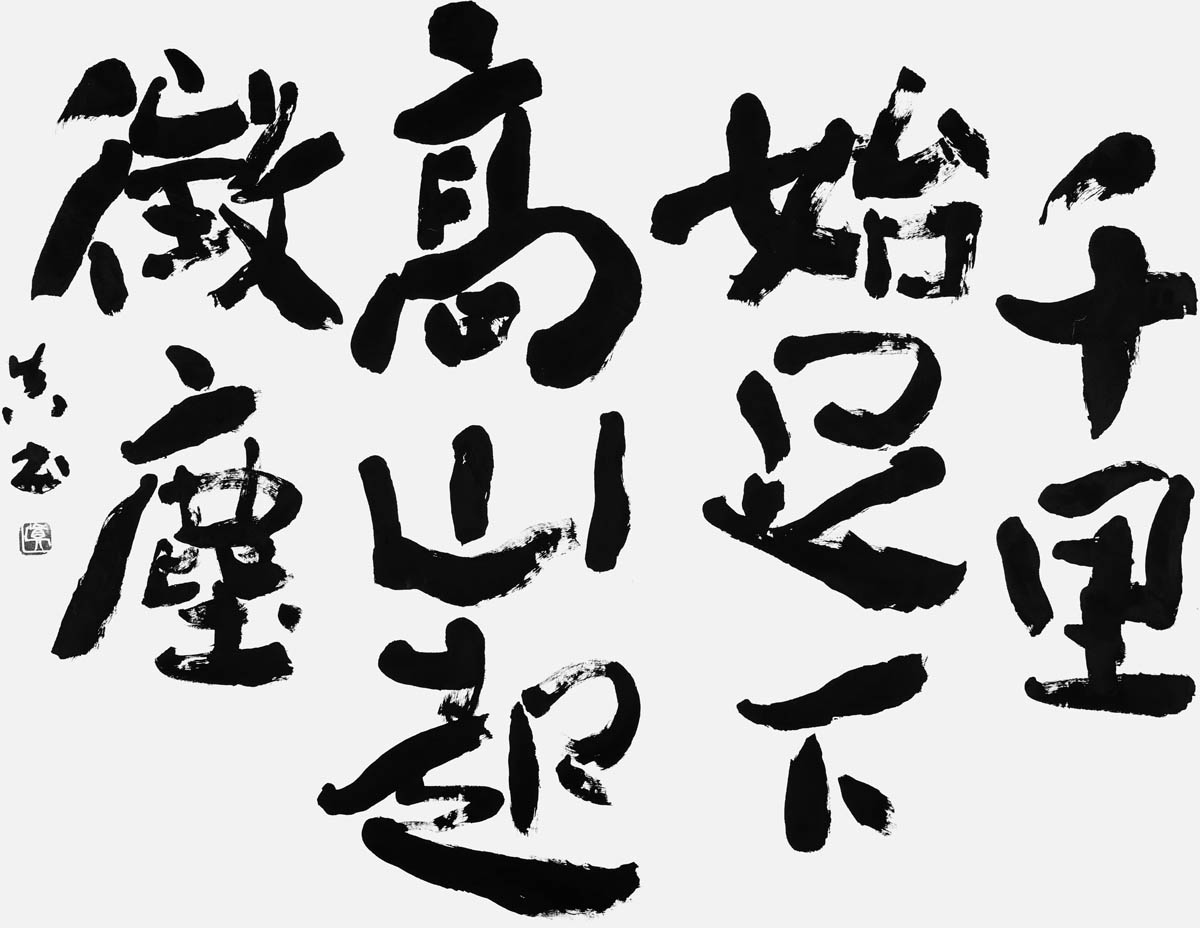 千里
始足下
高山起
微塵